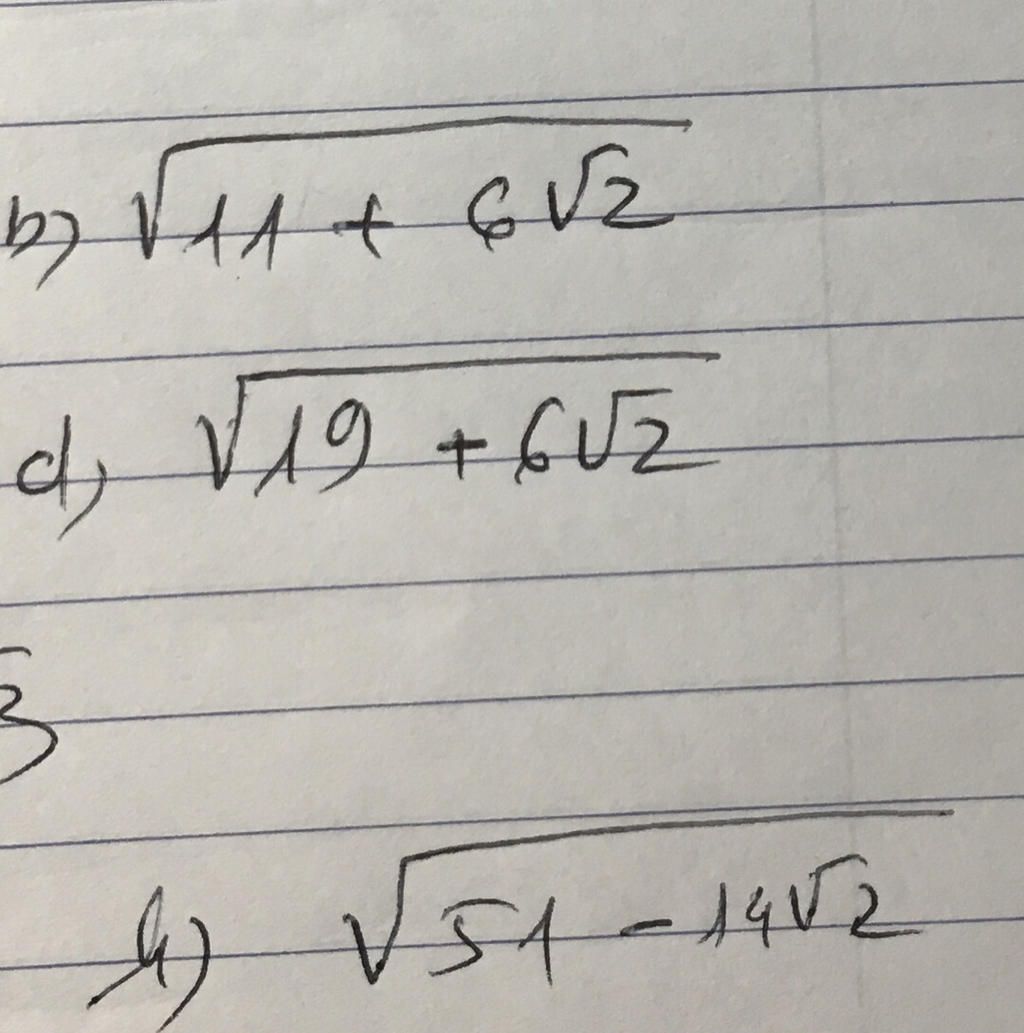 b) √(11 + 6√2)
d, √(19 + 6√2)
3
h) √(51 - 14√2)